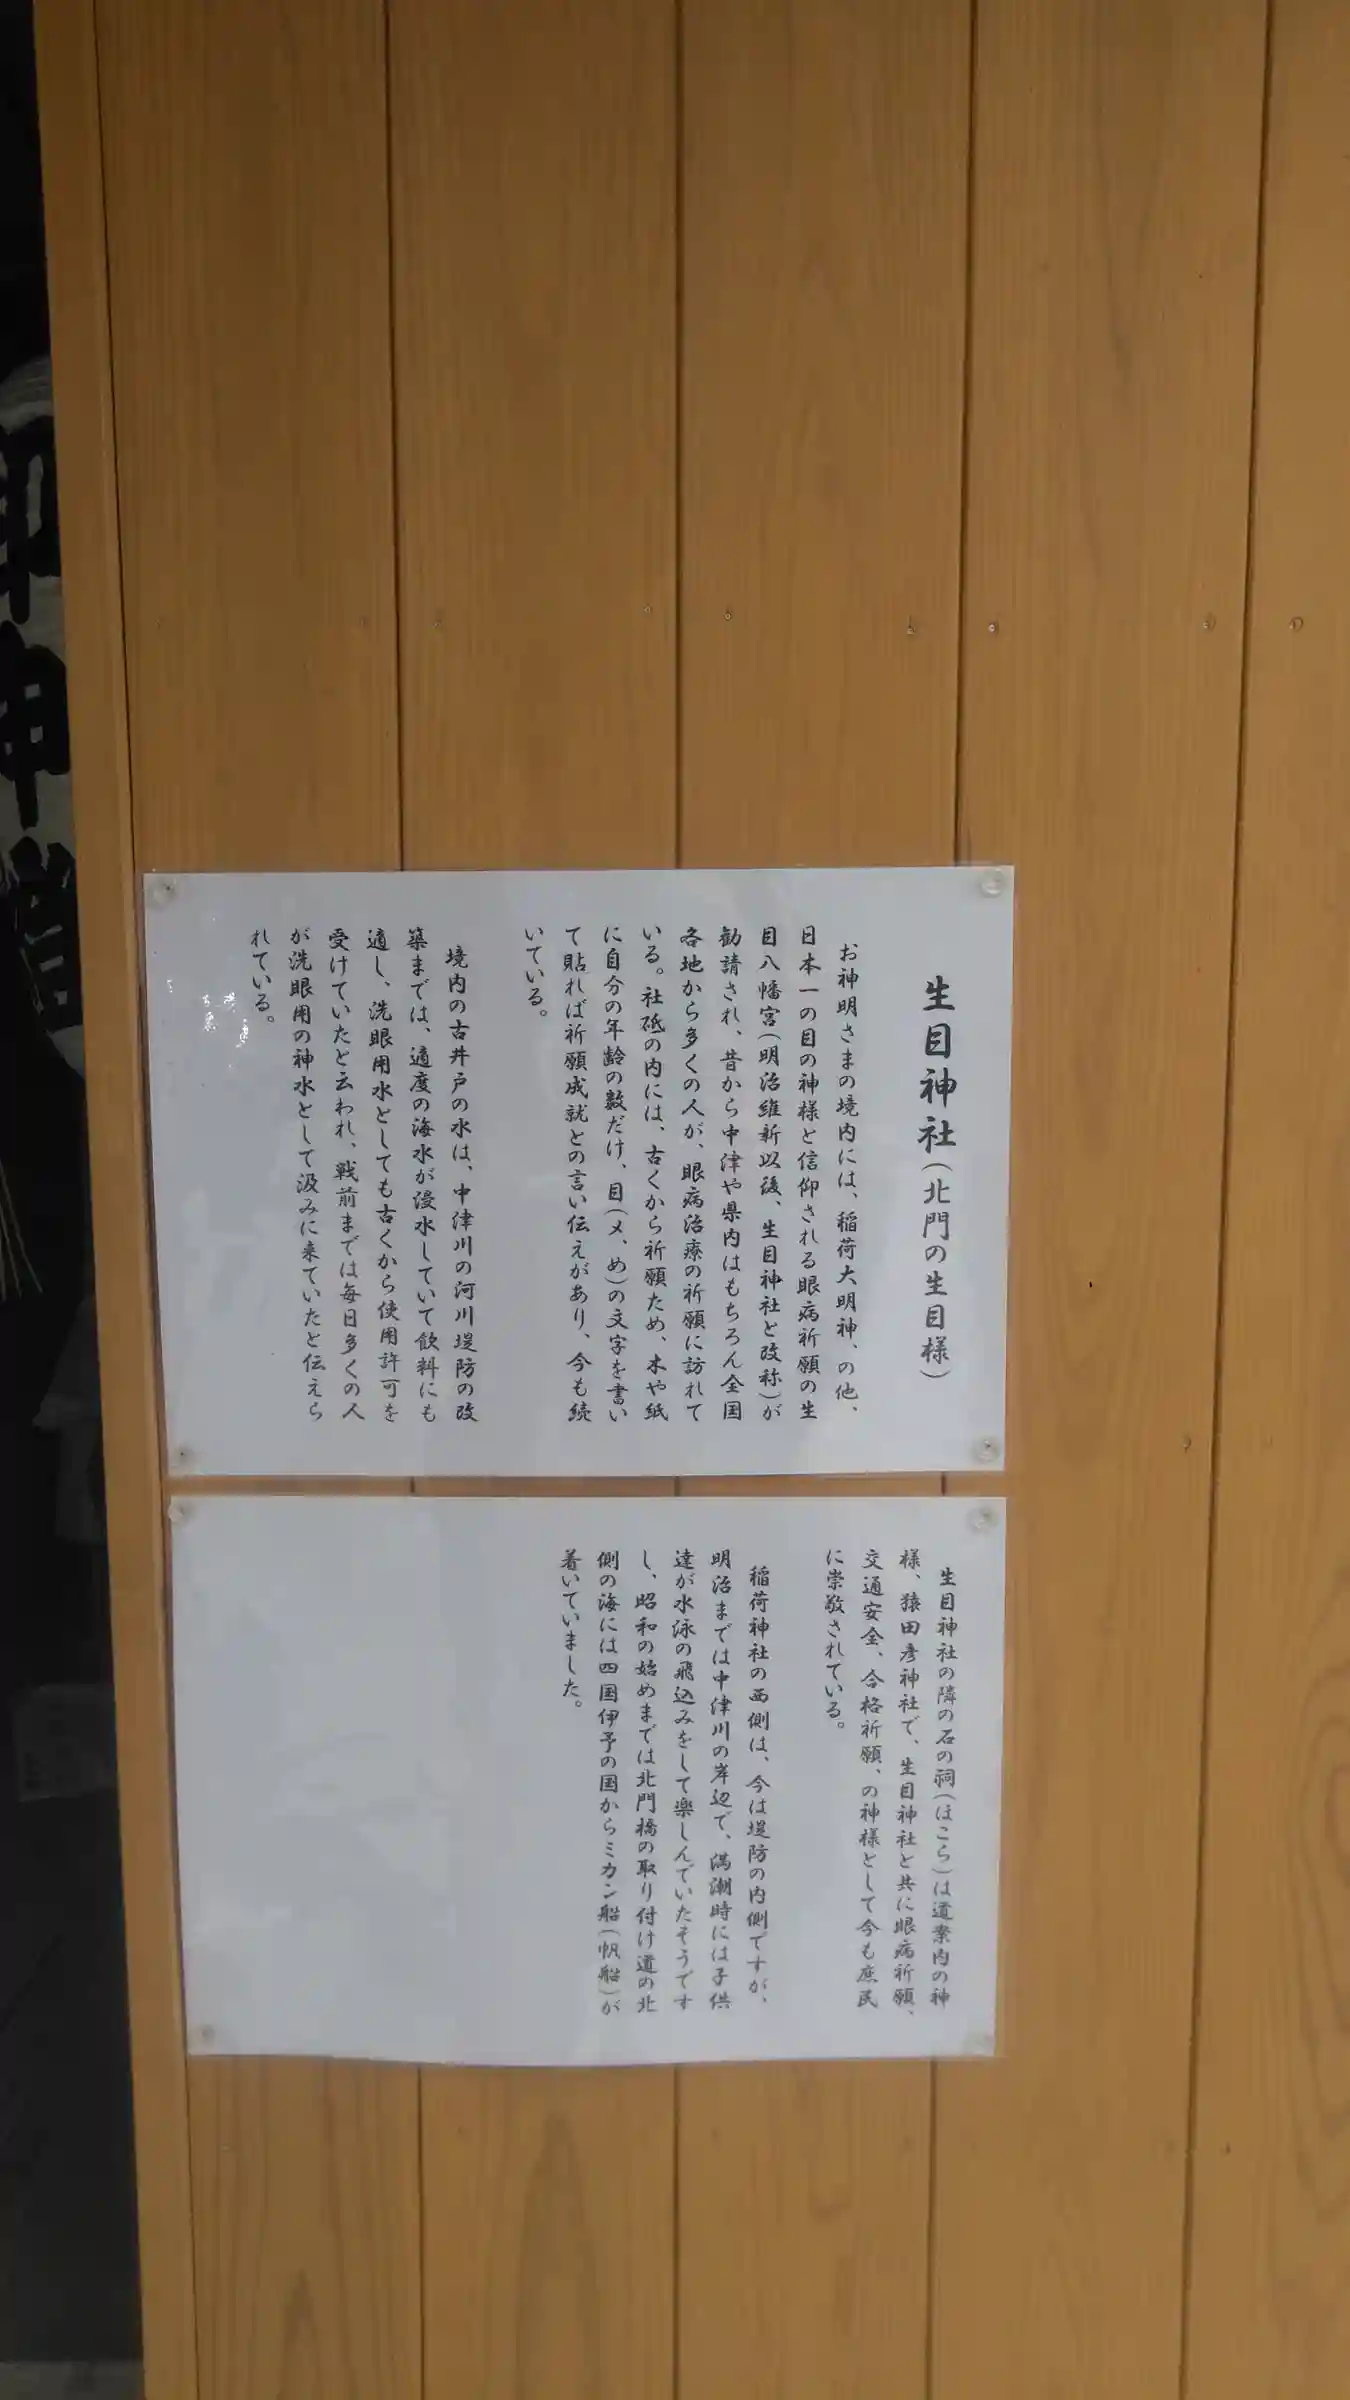 生目神社(北門の生目様)
お神明さまの境内には、稲荷大明神、の他、
日本一の目の神様と信仰される眼病祈願の生
目八幡宮(明治維新以後、生目神社と改称)が
勧請され、昔から中津や県内はもちろん全国
各地から多くの人が、眼病治療の祈願に訪れて
いる。社祗の内には、古くから祈願ため、木や紙
に自分の年齢の数だけ、目(メ、め)の文字を書い
て貼れば祈願成就との言い伝えがあり、今も続
いている。
境内の古井戸の水は、中津川の河川堤防の改
築までは、適度の海水が浸水していて飲料にも
適し、洗眼用水としても古くから使用許可を
受けていたと云われ、戦前までは毎日多くの人
が洗眼用の神水として汲みに来ていたと伝えら
れている。
生目神社の隣の石の祠(ほこら)は道案内の神
様、猿田彦神社で、生目神社と共に眼病祈願、
交通安全、合格祈願、の神様として今も庶民
に崇敬されている。
稲荷神社の西側は、今は堤防の内側ですが、
明治までは中津川の岸辺で、満潮時には子供
達が水泳の飛込みをして楽しんでいたそうです
し、昭和の始めまでは北門橋の取り付け道の北
側の海には四国伊予の国からミカン船(帆船)が
着いていました。